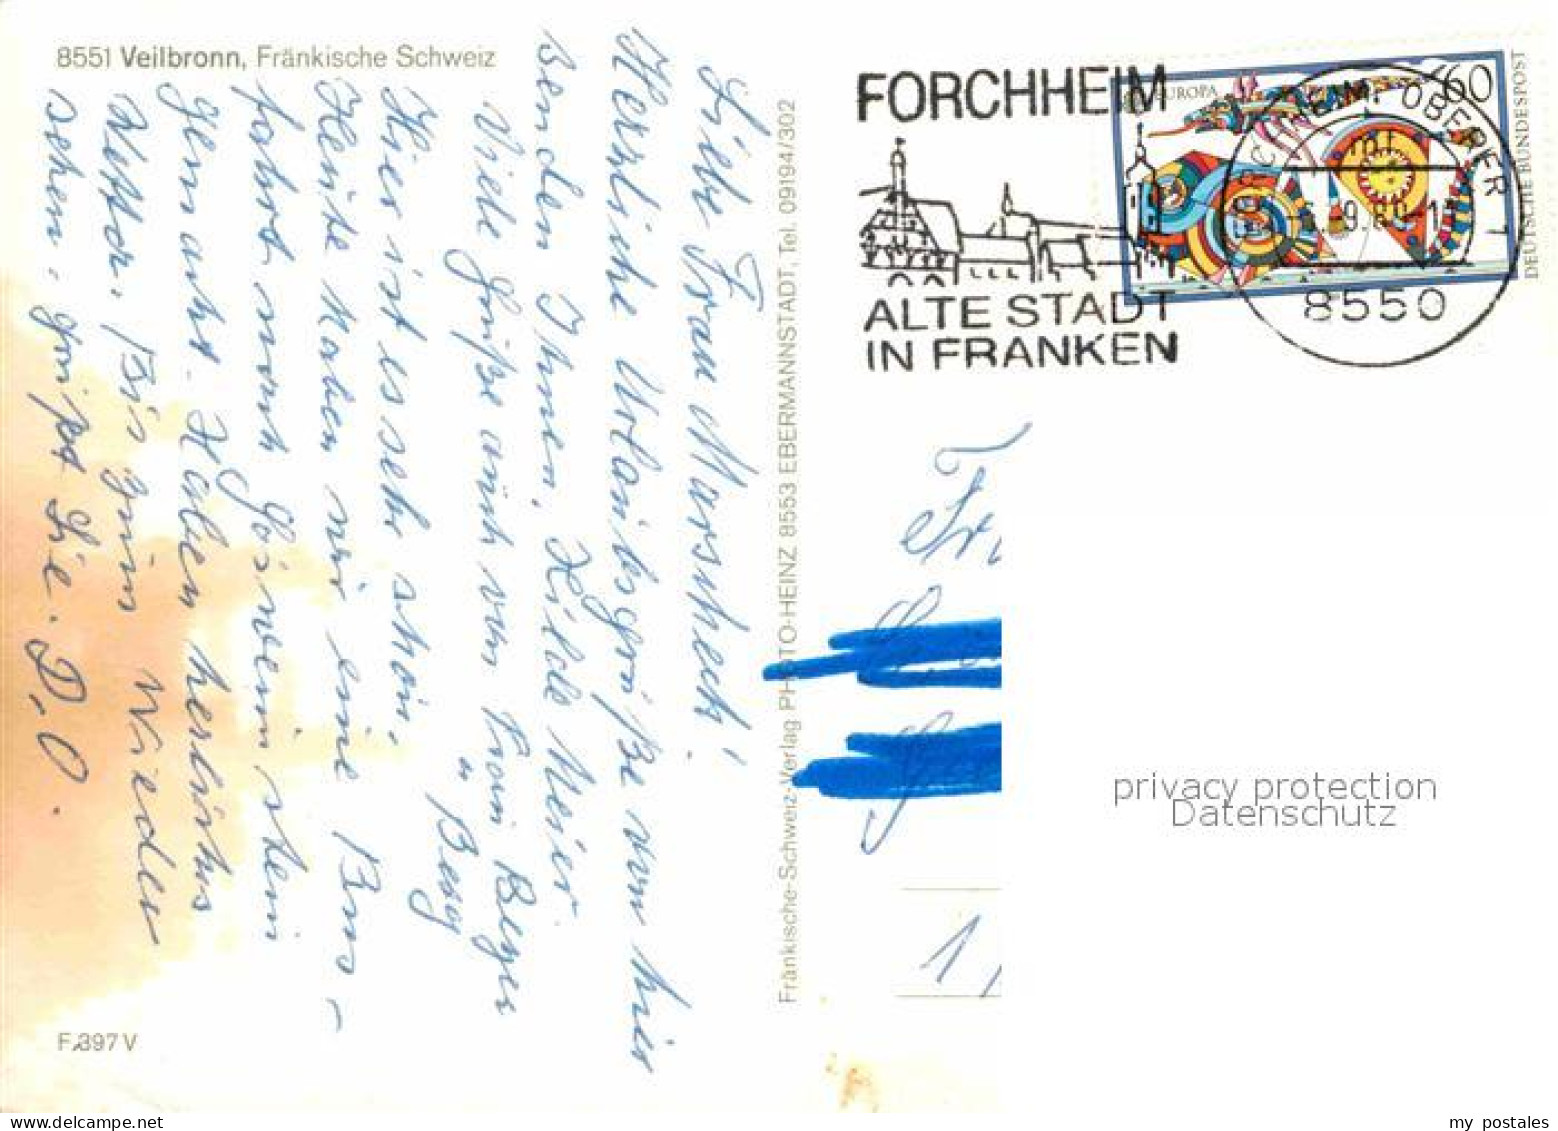 8551 Veilbronn, Fränkische Schweiz
Liebe Frau Marscheck!
Herzliche Urlaubsgrüße von hier
senden Ihnen, Hilde Meier.
Viele Grüße auch von Fräu Beyer
" Berg
Hier ist es sehr schön,
Heute haben wir eine Bus-
fahrt nach Gösweinstein
gemacht. Haben herliches
Wetter, Bis zum Wieder
sehen, grüßt Sie. D. O.
F.397 V
Fränkische-Schweiz-Verlag PHOTO-HEINZ 8553 EBERMANNSTADT, Tel. 09194/302
FORCHHEIM
ALTE STADT
IN FRANKEN
EUROPA
60
DEUTSCHE BUNDESPOST
FORCHHEIM, OBERFR 1
8550
1
privacy protection
Datenschutz
my postales